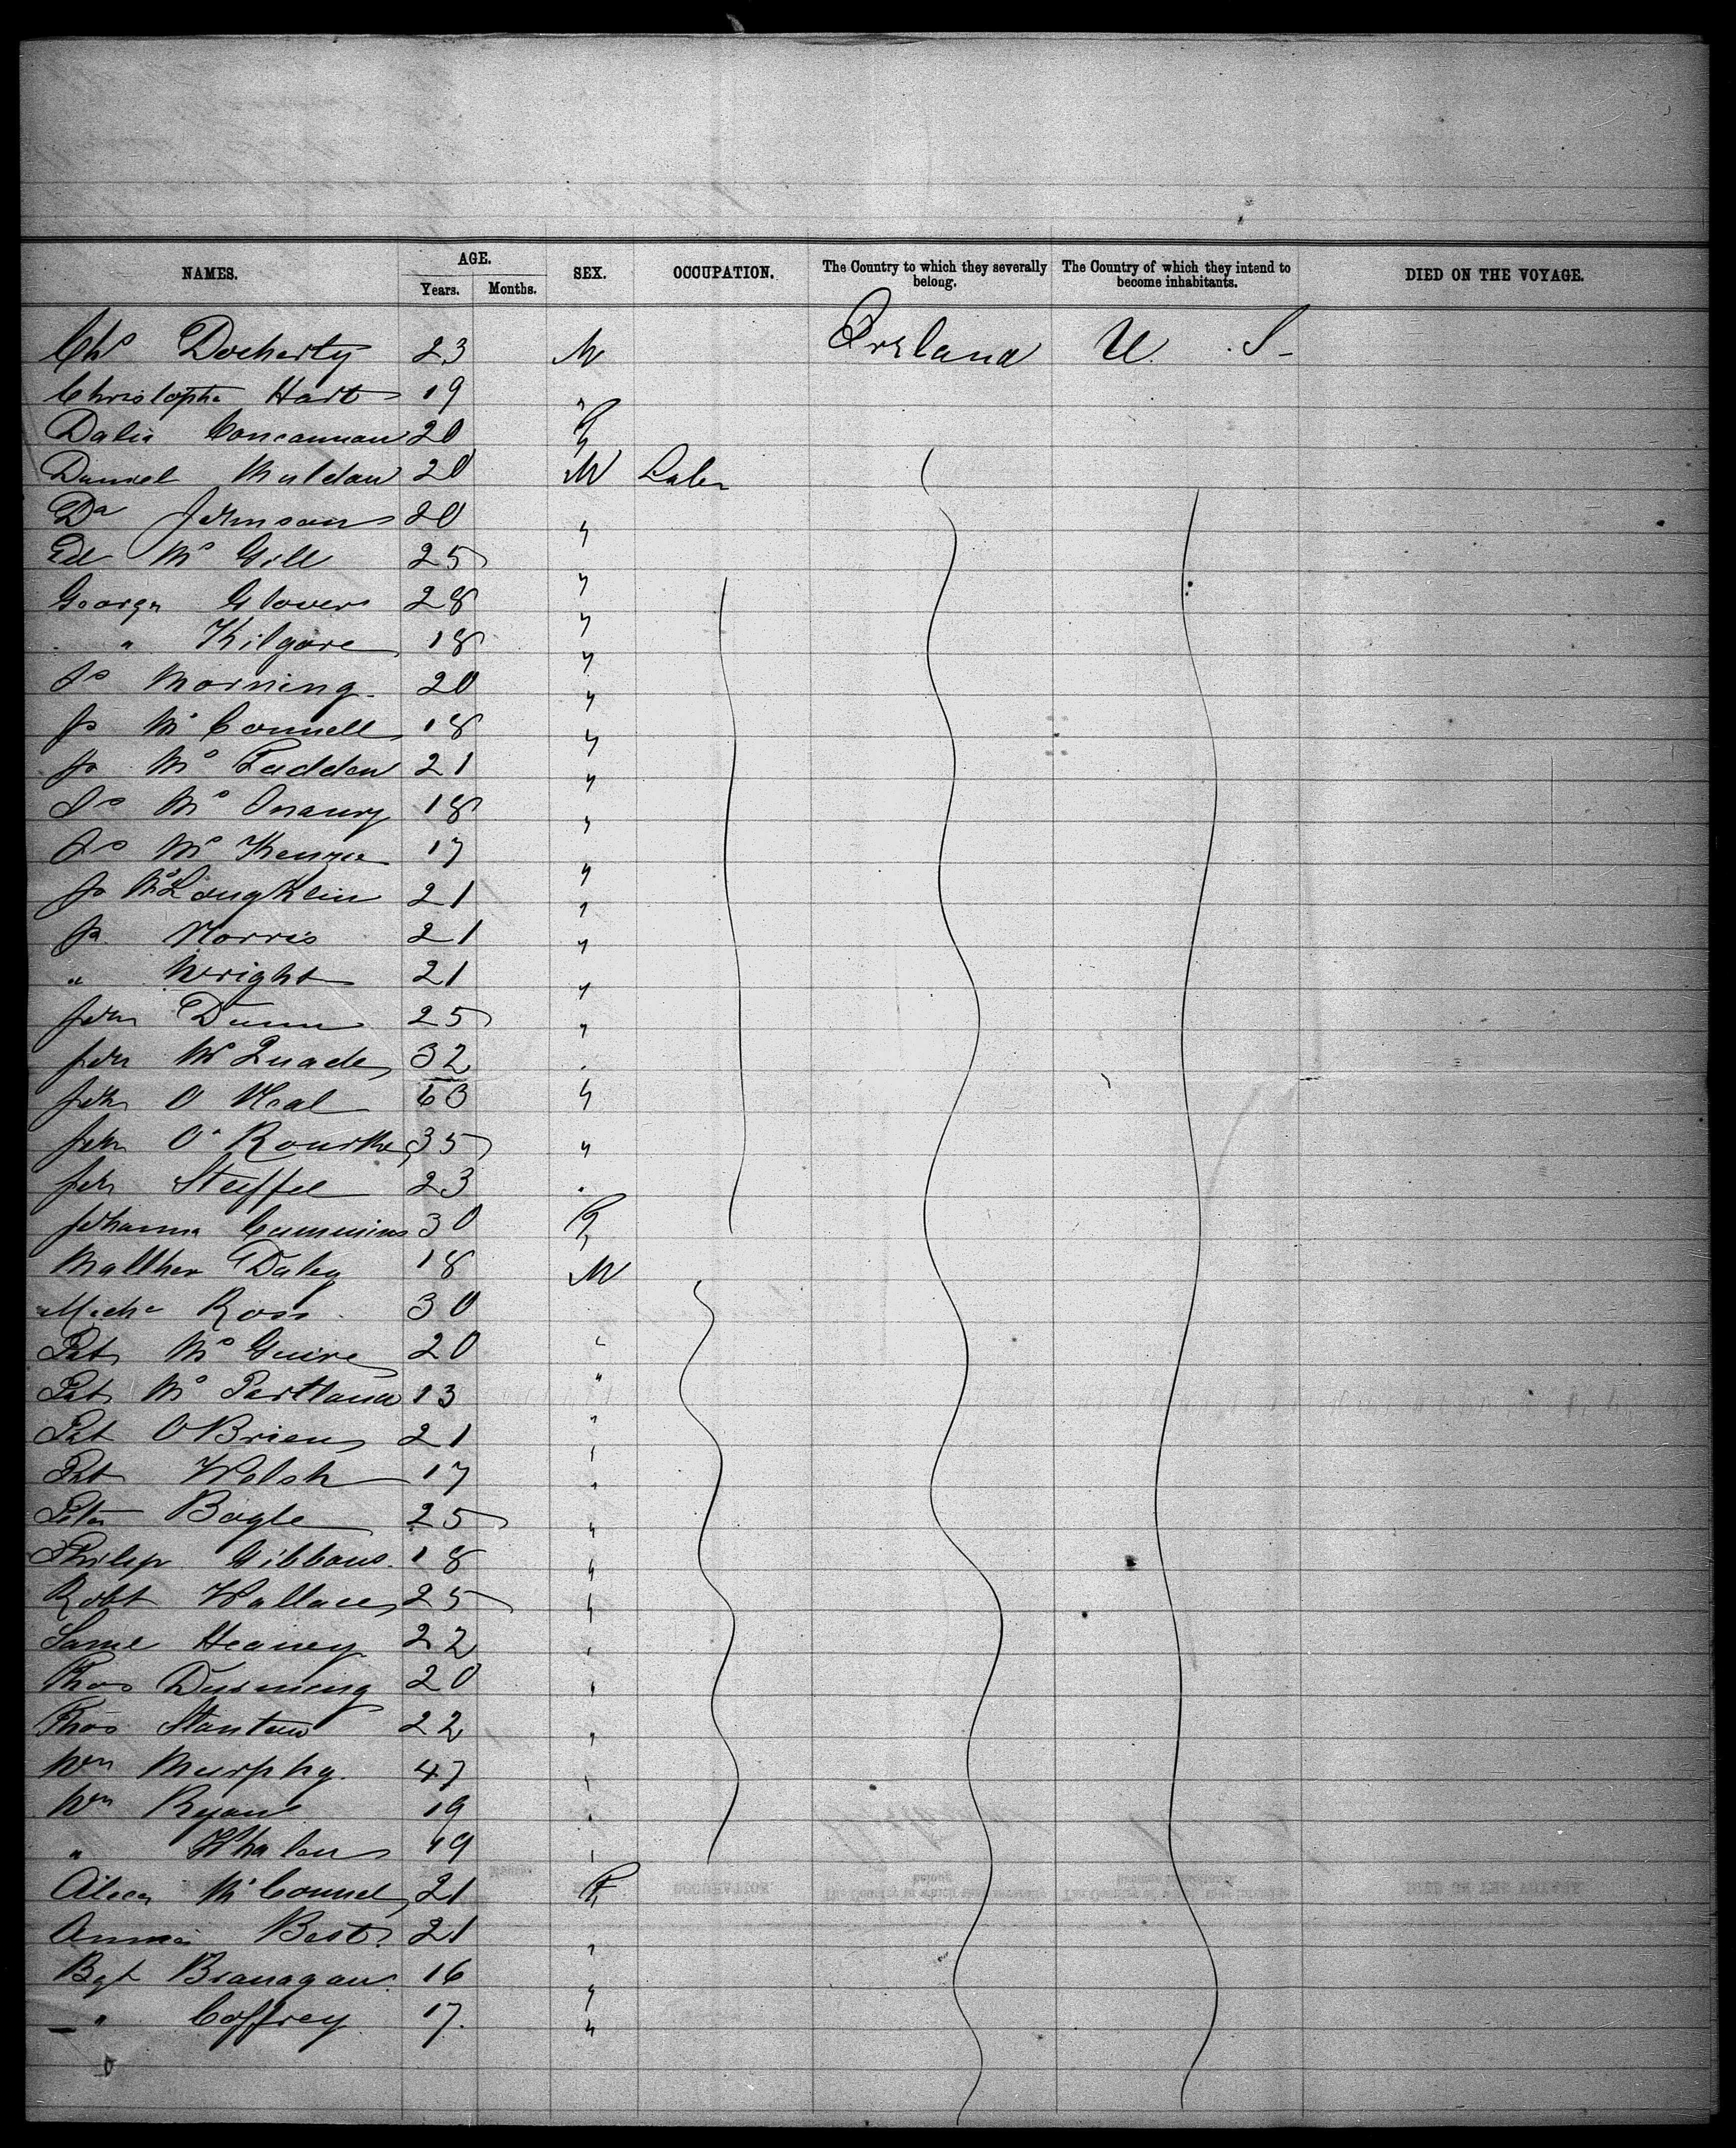 NAMES. AGE. Years. Months. SEX. OCCUPATION. The Country to which they severally belong. The Country of which they intend to become inhabitants. DIED ON THE VOYAGE.
Chs Docherty 23 M Ireland U. S-
Christophe Hart 19 "
Delia Concannon 20 F
Daniel Muldau 20 M Labr
Da Johnson 20 "
Ed Mc Gill 25 "
George Glover 28 "
" Kilgore 18 "
Js Morning 20 "
Js Mc Connell 18 "
Js Mc Fadden 21 "
Js Mc 18 "
Js Mc Kenzie 17 "
Js McLoughlin 21 "
Js Norris 21 "
" Wright 21 "
John Dunn 25 "
John McQuade 32 "
John O Neal 63 "
John O'Rourke 35 "
John 23 "
Johanna Cummins 30 F
Matthew Daley 18 M
Michl Ross 30
Pat Mc Guire 20 "
Pat Mc Partland 13 "
Pat O'Brien 21 "
Pat Walsh 17 "
Peter Bogle 25 "
Philip Gibbons 18 "
Robt Wallace 25 "
Saml Heaney 22 "
Thos Durning 20 "
Thos Stanton 22 "
Wm Murphy 47 "
Wm Ryan 19 "
" Whalen 19 "
Alice McConnel 21 F
Annie Best 21 "
Bgt Branagan 16 "
" Caffrey 17. "